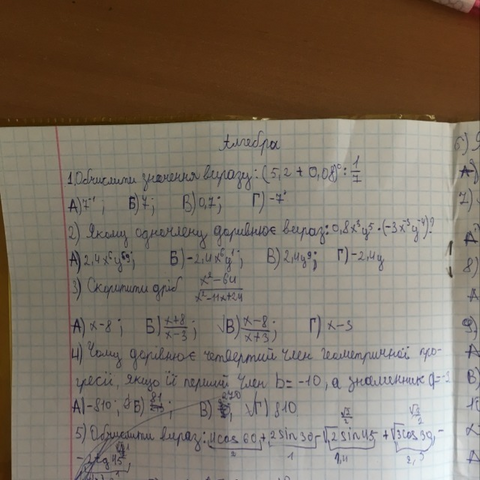 Алгебра
1) Обчислити значення виразу: (5,2 + 0,08)⁰ : 1/7
А) 7⁻¹; Б) 7; В) 0,7; Г) -7
2) Якому одночлену дорівнює вираз: 0,8x³y⁵ · (-3x³y⁻⁴)?
А) 2,4x⁶y; Б) -2,4x⁶y; В) 2,4y⁹; Г) -2,4y
3) Скоротити дріб (x²-64)/(x²-11x+24)
А) x-8; Б) (x+8)/(x-3); В) (x-8)/(x+3); Г) x-3
4) Чому дорівнює четвертий член геометричної про-
гресії, якщо її перший член b = -10, а знаменник q = -3
А) -810; Б) В) 270 Г) 810
5) Обчислити вираз: 4cos60 + 2sin30 - √2sin45 + √3cos30 -